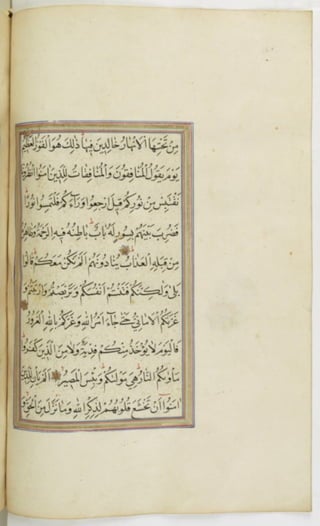 مِن تَحْتِهَا الْأَنْهَارُ خَالِدِينَ فِيهَا ذَلِكَ هُوَ الْفَوْزُ الْعَظِيمُ
يَوْمَ يَقُولُ الْمُنَافِقُونَ وَالْمُنَافِقَاتُ لِلَّذِينَ آمَنُوا انْظُرُونَا
نَقْتَبِسْ مِن نُورِكُمْ قِيلَ ارْجِعُوا وَرَاءَكُمْ فَالْتَمِسُوا نُورًا
فَضُرِبَ بَيْنَهُمْ بِسُورٍ لَهُ بَابٌ بَاطِنُهُ فِيهِ الرَّحْمَةُ وَظَاهِرُهُ
مِن قِبَلِهِ الْعَذَابُ يُنَادُونَهُمْ أَلَمْ نَكُنْ مَعَكُمْ قَالُوا
بَلَى وَلَكِنَّكُمْ فَتَنْتُمْ أَنْفُسَكُمْ وَتَرَبَّصْتُمْ وَارْتَبْتُمْ وَ
غَرَّتْكُمُ الْأَمَانِيُّ حَتَّى جَاءَ أَمْرُ اللَّهِ وَغَرَّكُمْ بِاللَّهِ الْغَرُورُ
فَالْيَوْمَ لَا يُؤْخَذُ مِنْكُمْ فِدْيَةٌ وَلَا مِنَ الَّذِينَ كَفَرُوا
مَأْوَاكُمُ النَّارُ هِيَ مَوْلَاكُمْ وَبِئْسَ الْمَصِيرُ أَلَمْ يَأْنِ لِلَّذِينَ
آمَنُوا أَنْ تَخْشَعَ قُلُوبُهُمْ لِذِكْرِ اللَّهِ وَمَا نَزَلَ مِنَ الْحَقِّ وَ